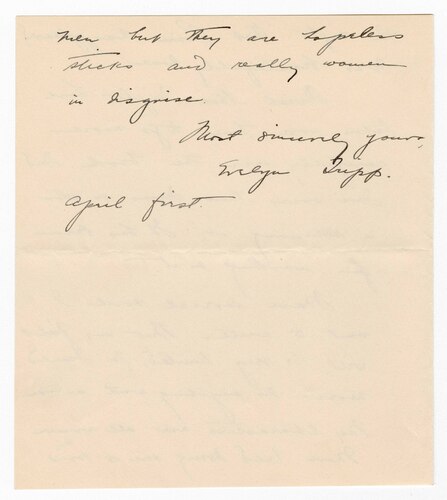 men but they are hopeless
sticks and really women
in disguise.
Most sincerely yours,
Evelyn Tripp.
April first.